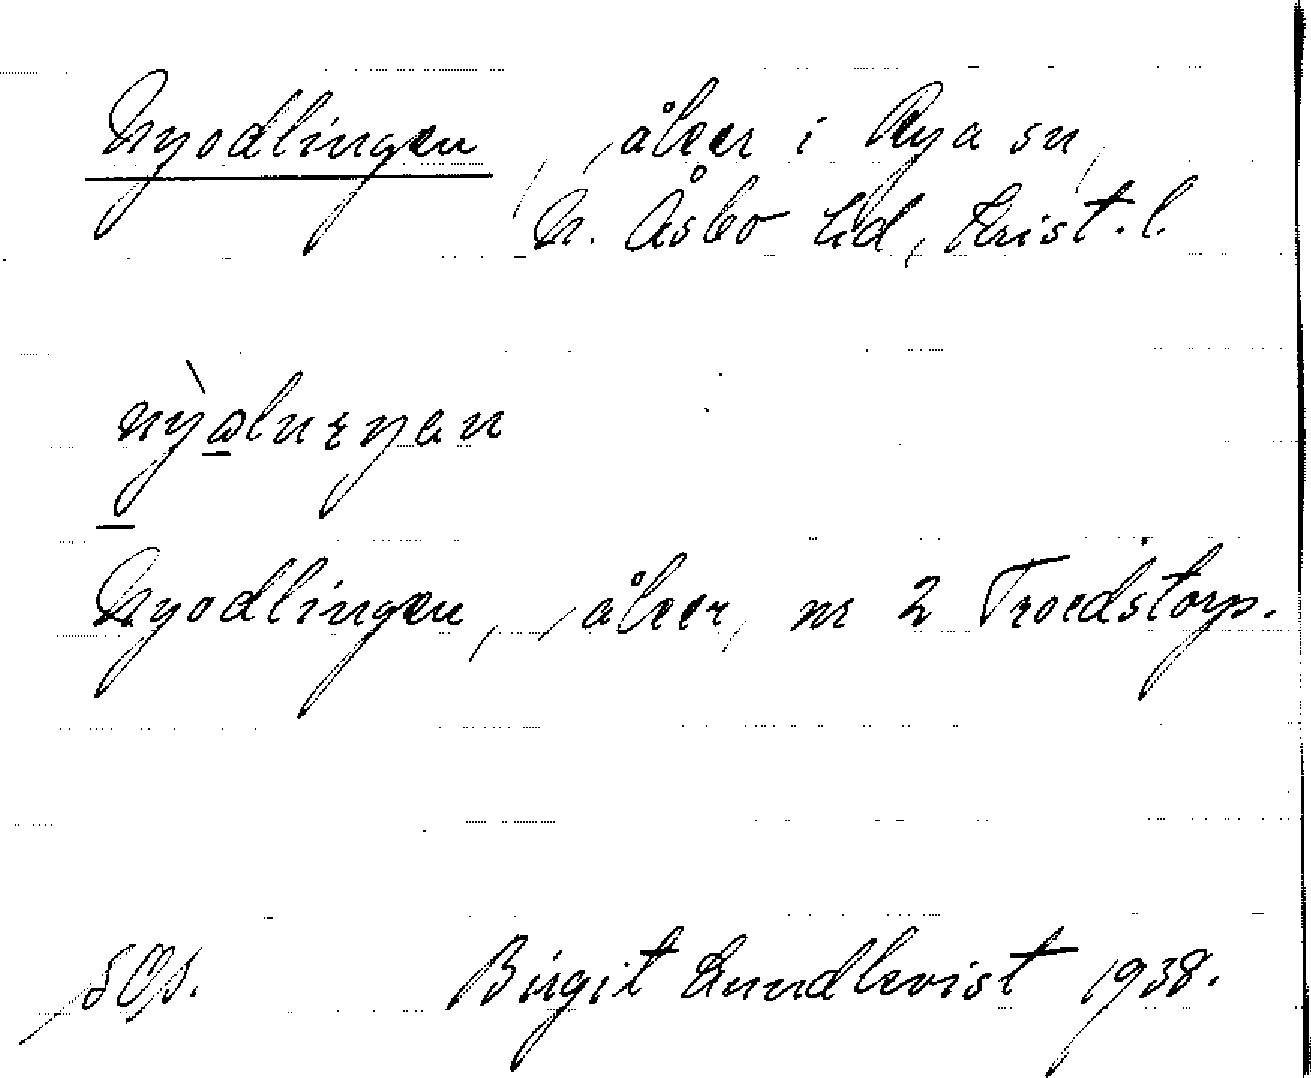 Nyodlingen, åker i Rya sn,
N. Åsbo hd, Krist. l.
Nyodlingen, åker, nr 2 Troedstorp.
Birgit Lundkvist 1938.